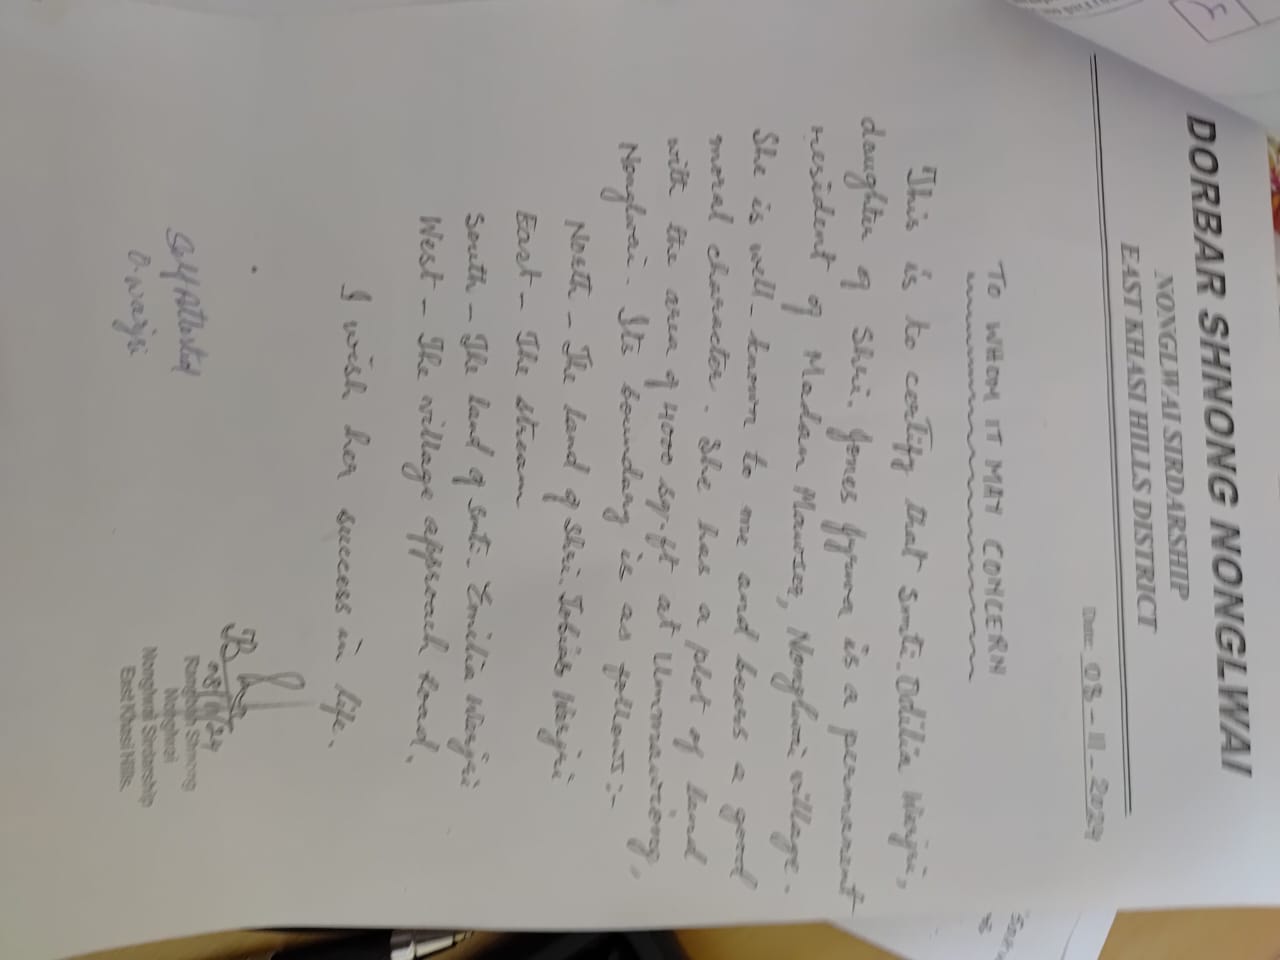 DORBAR SHNONG NONGLWAI
NONGLWAI SIRDARSHIP
EAST KHASI HILLS DISTRICT
Date: 08-11-2024
TO WHOM IT MAY CONCERN
This is to certify that Smti. Odilia Warjri,
daughter of Shri. Jones Jyrwa is a permanent
resident of Madan Mawroh, Nonglwai village.
She is well-known to me and bears a good
moral character. She has a plot of land
with the area of 4000 sq.ft at Ummawiong,
Nonglwai. Its boundary is as follows:-
North - The land of Shri. Tobias Warjri
East - The stream
South - The land of Smti. Emilia Warjri
West - The village approach road.
I wish her success in life.
Self Attested
O. Warjri
08/11/24
Rangbah Shnong
Nonglwai
Nonglwai Sirdarship
East Khasi Hills.